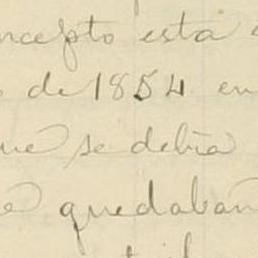 ncepto esta
de 1854 en
ue se debia
e quedaban